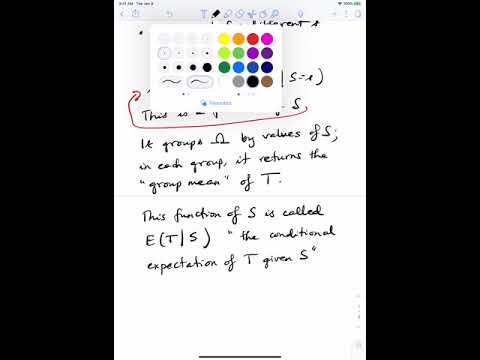 9:41 AM Tue Jan 9
different s
Favorites
| S=s)
This is a S
It groups Ω by values of S;
in each group, it returns the
"group mean" of T.
This function of S is called
E(T|S) "the conditional
expectation of T given S"